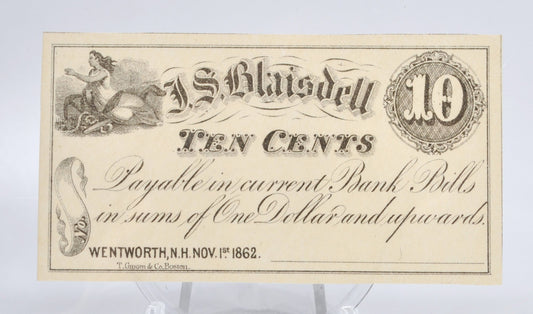 J.S. Blaisdell
10
TEN CENTS
Payable in current Bank Bills
in sums of One Dollar and upwards.
No.
WENTWORTH, N.H. NOV. 1st 1862.
T. Groom & Co. Boston.